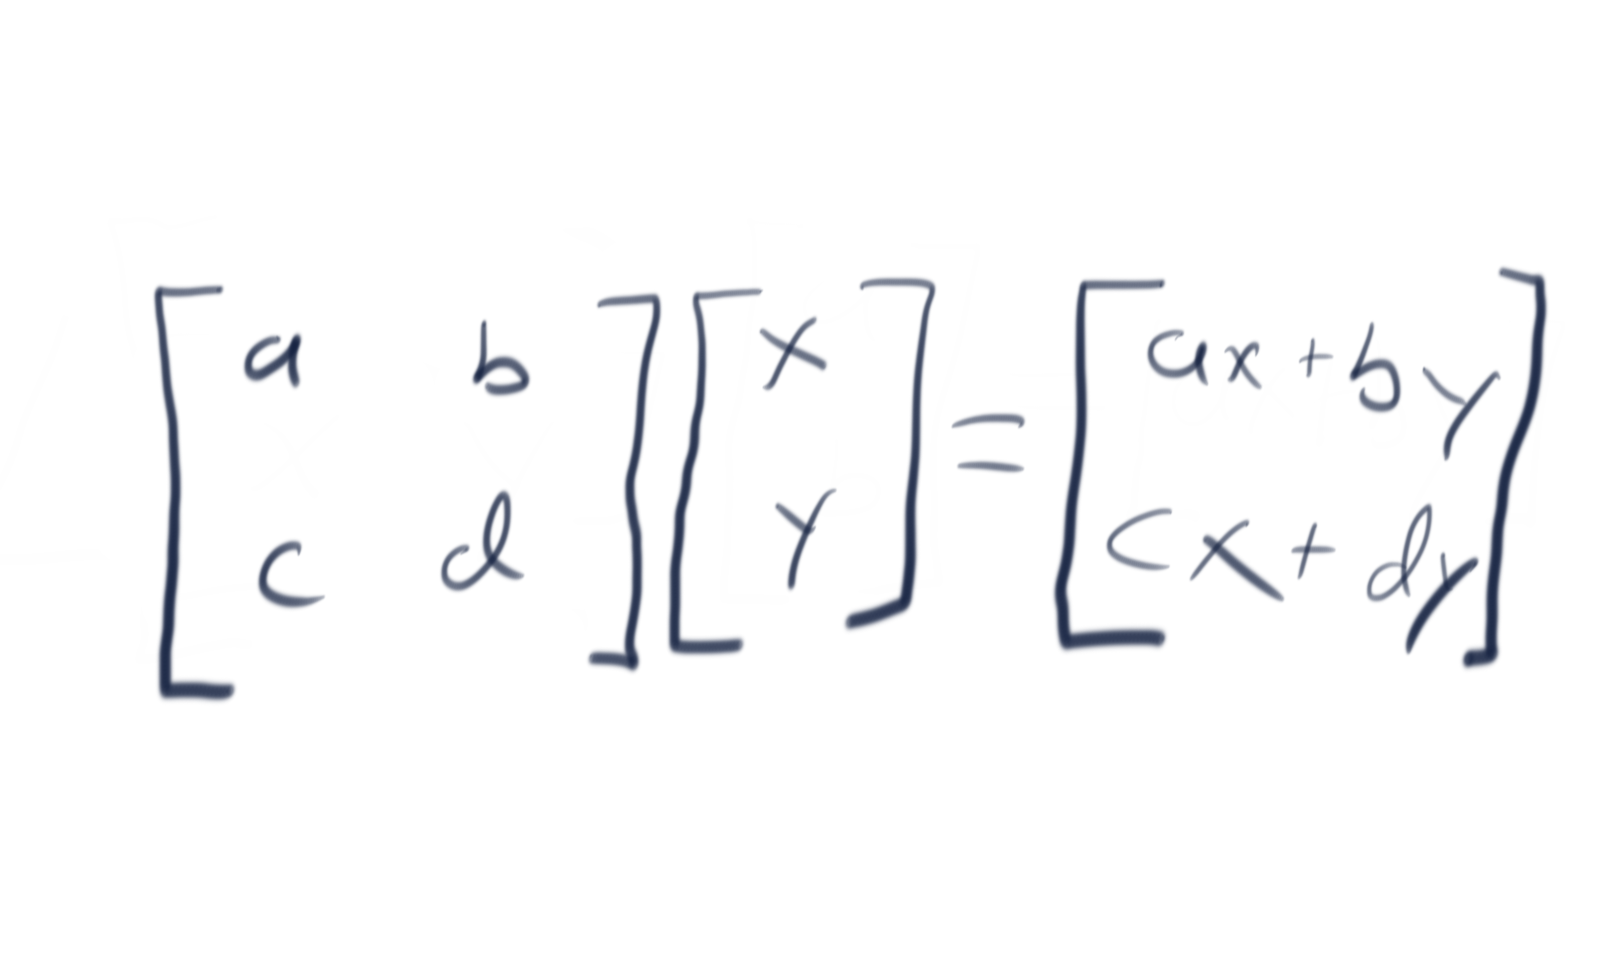 [a b; c d] [x; y] = [ax + by; cx + dy]